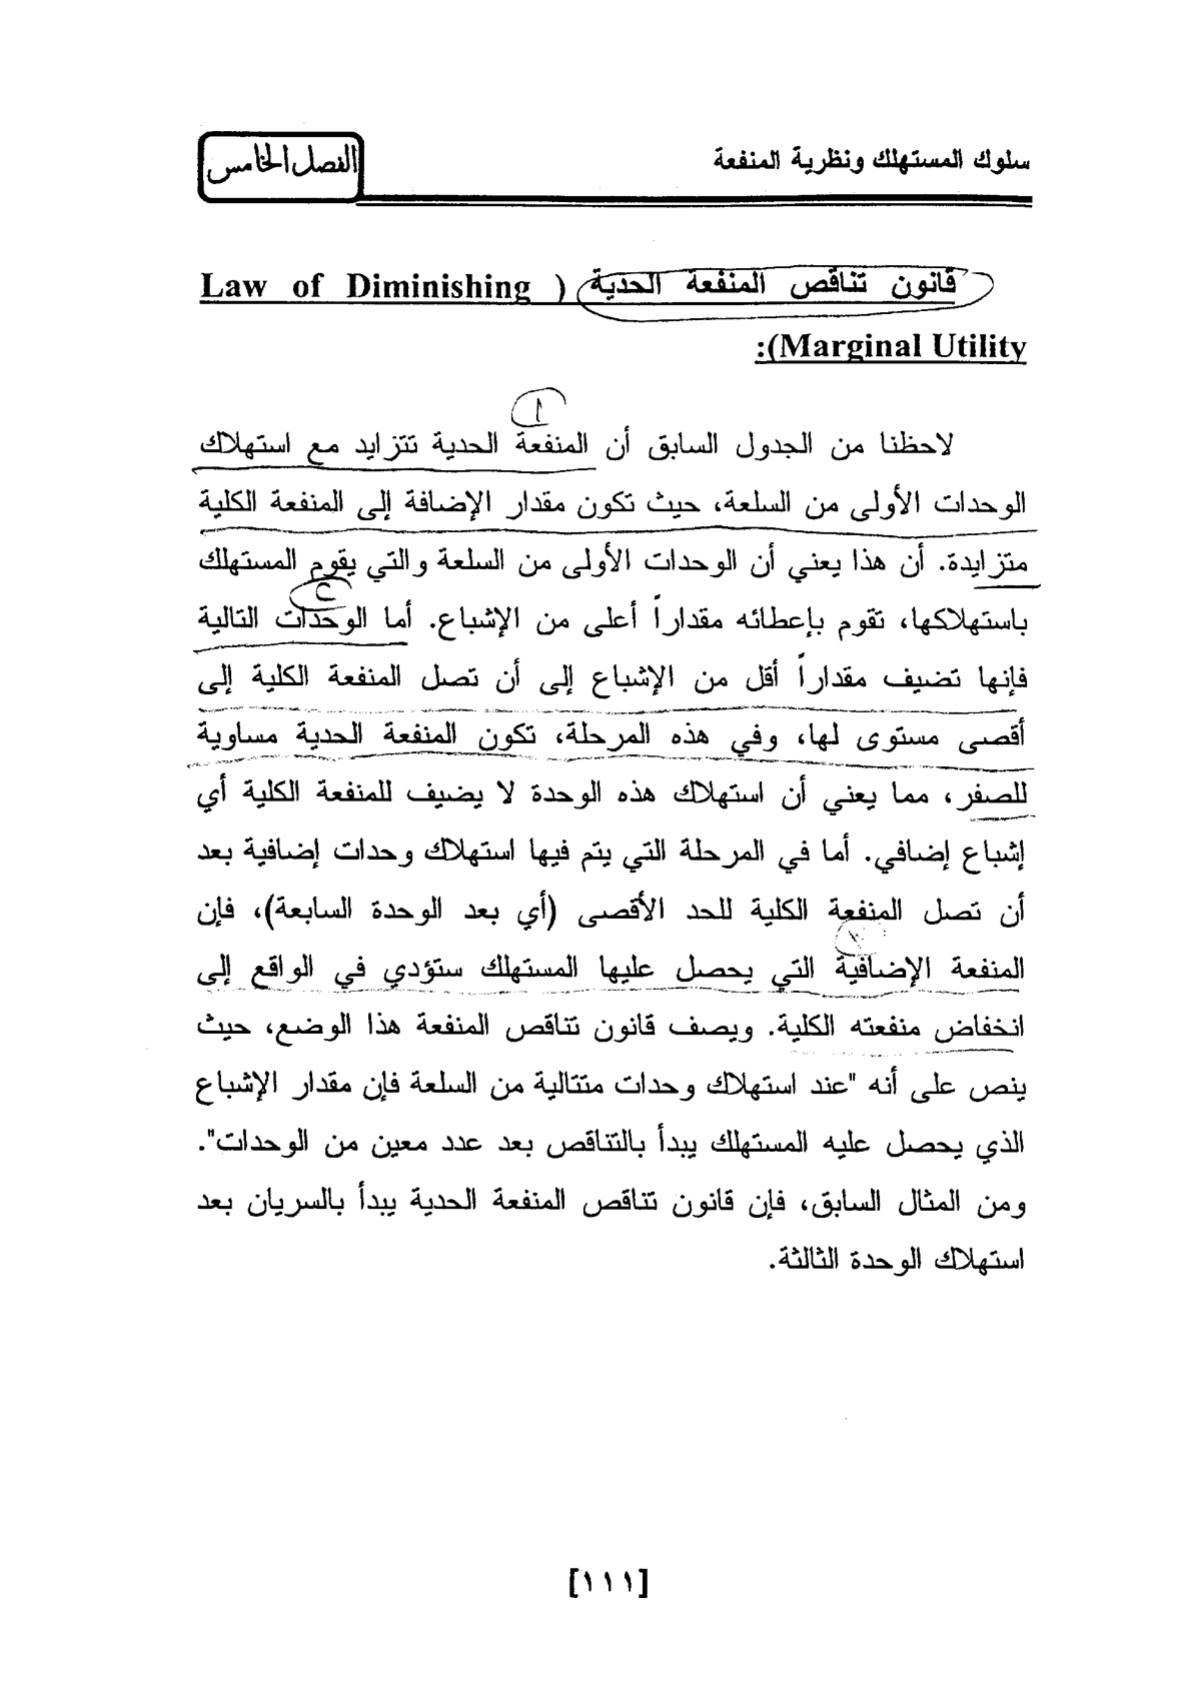 سلوك المستهلك ونظرية المنفعة
الفصل الخامس
قانون تناقص المنفعة الحدية (Law of Diminishing
Marginal Utility):
١
لاحظنا من الجدول السابق أن المنفعة الحدية تتزايد مع استهلاك
الوحدات الأولى من السلعة، حيث تكون مقدار الإضافة إلى المنفعة الكلية
متزايدة. أن هذا يعني أن الوحدات الأولى من السلعة والتي يقوم المستهلك
٢
باستهلاكها، تقوم بإعطائه مقداراً أعلى من الإشباع. أما الوحدات التالية
فإنها تضيف مقداراً أقل من الإشباع إلى أن تصل المنفعة الكلية إلى
أقصى مستوى لها، وفي هذه المرحلة، تكون المنفعة الحدية مساوية
للصفر، مما يعني أن استهلاك هذه الوحدة لا يضيف للمنفعة الكلية أي
إشباع إضافي. أما في المرحلة التي يتم فيها استهلاك وحدات إضافية بعد
أن تصل المنفعة الكلية للحد الأقصى (أي بعد الوحدة السابعة)، فإن
المنفعة الإضافية التي يحصل عليها المستهلك ستؤدي في الواقع إلى
انخفاض منفعته الكلية. ويصف قانون تناقص المنفعة هذا الوضع، حيث
ينص على أنه "عند استهلاك وحدات متتالية من السلعة فإن مقدار الإشباع
الذي يحصل عليه المستهلك يبدأ بالتناقص بعد عدد معين من الوحدات".
ومن المثال السابق، فإن قانون تناقص المنفعة الحدية يبدأ بالسريان بعد
استهلاك الوحدة الثالثة.
[١١١]